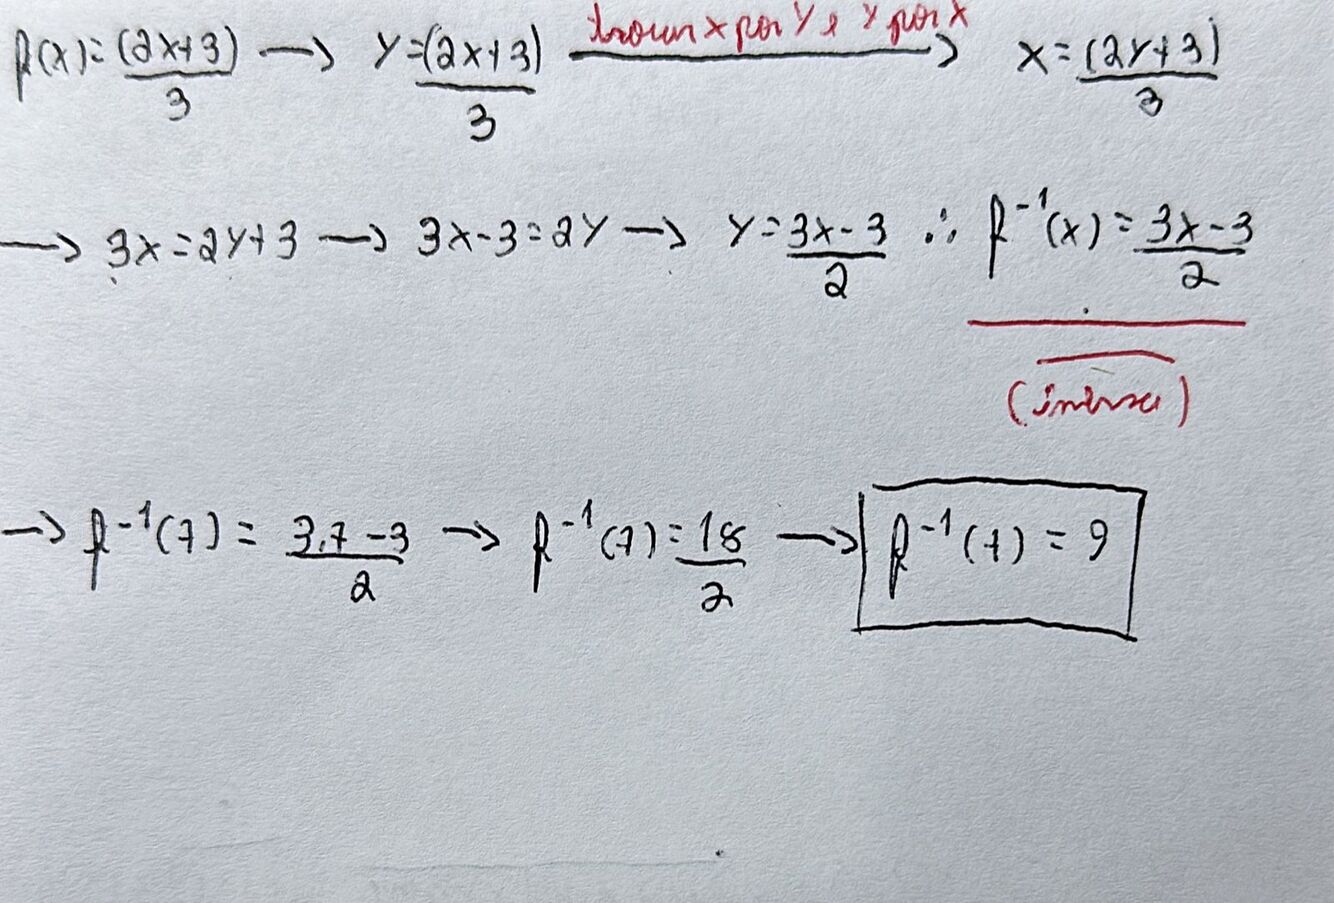 f(x)=(2x+3)/3 → y=(2x+3)/3 trocar x por y e y por x → x=(2y+3)/3
→ 3x=2y+3 → 3x-3=2y → y=3x-3/2 ∴ f⁻¹(x)=3x-3/2
(inversa)
→ f⁻¹(7)=3.7-3/2 → f⁻¹(7)=18/2 → f⁻¹(7)=9